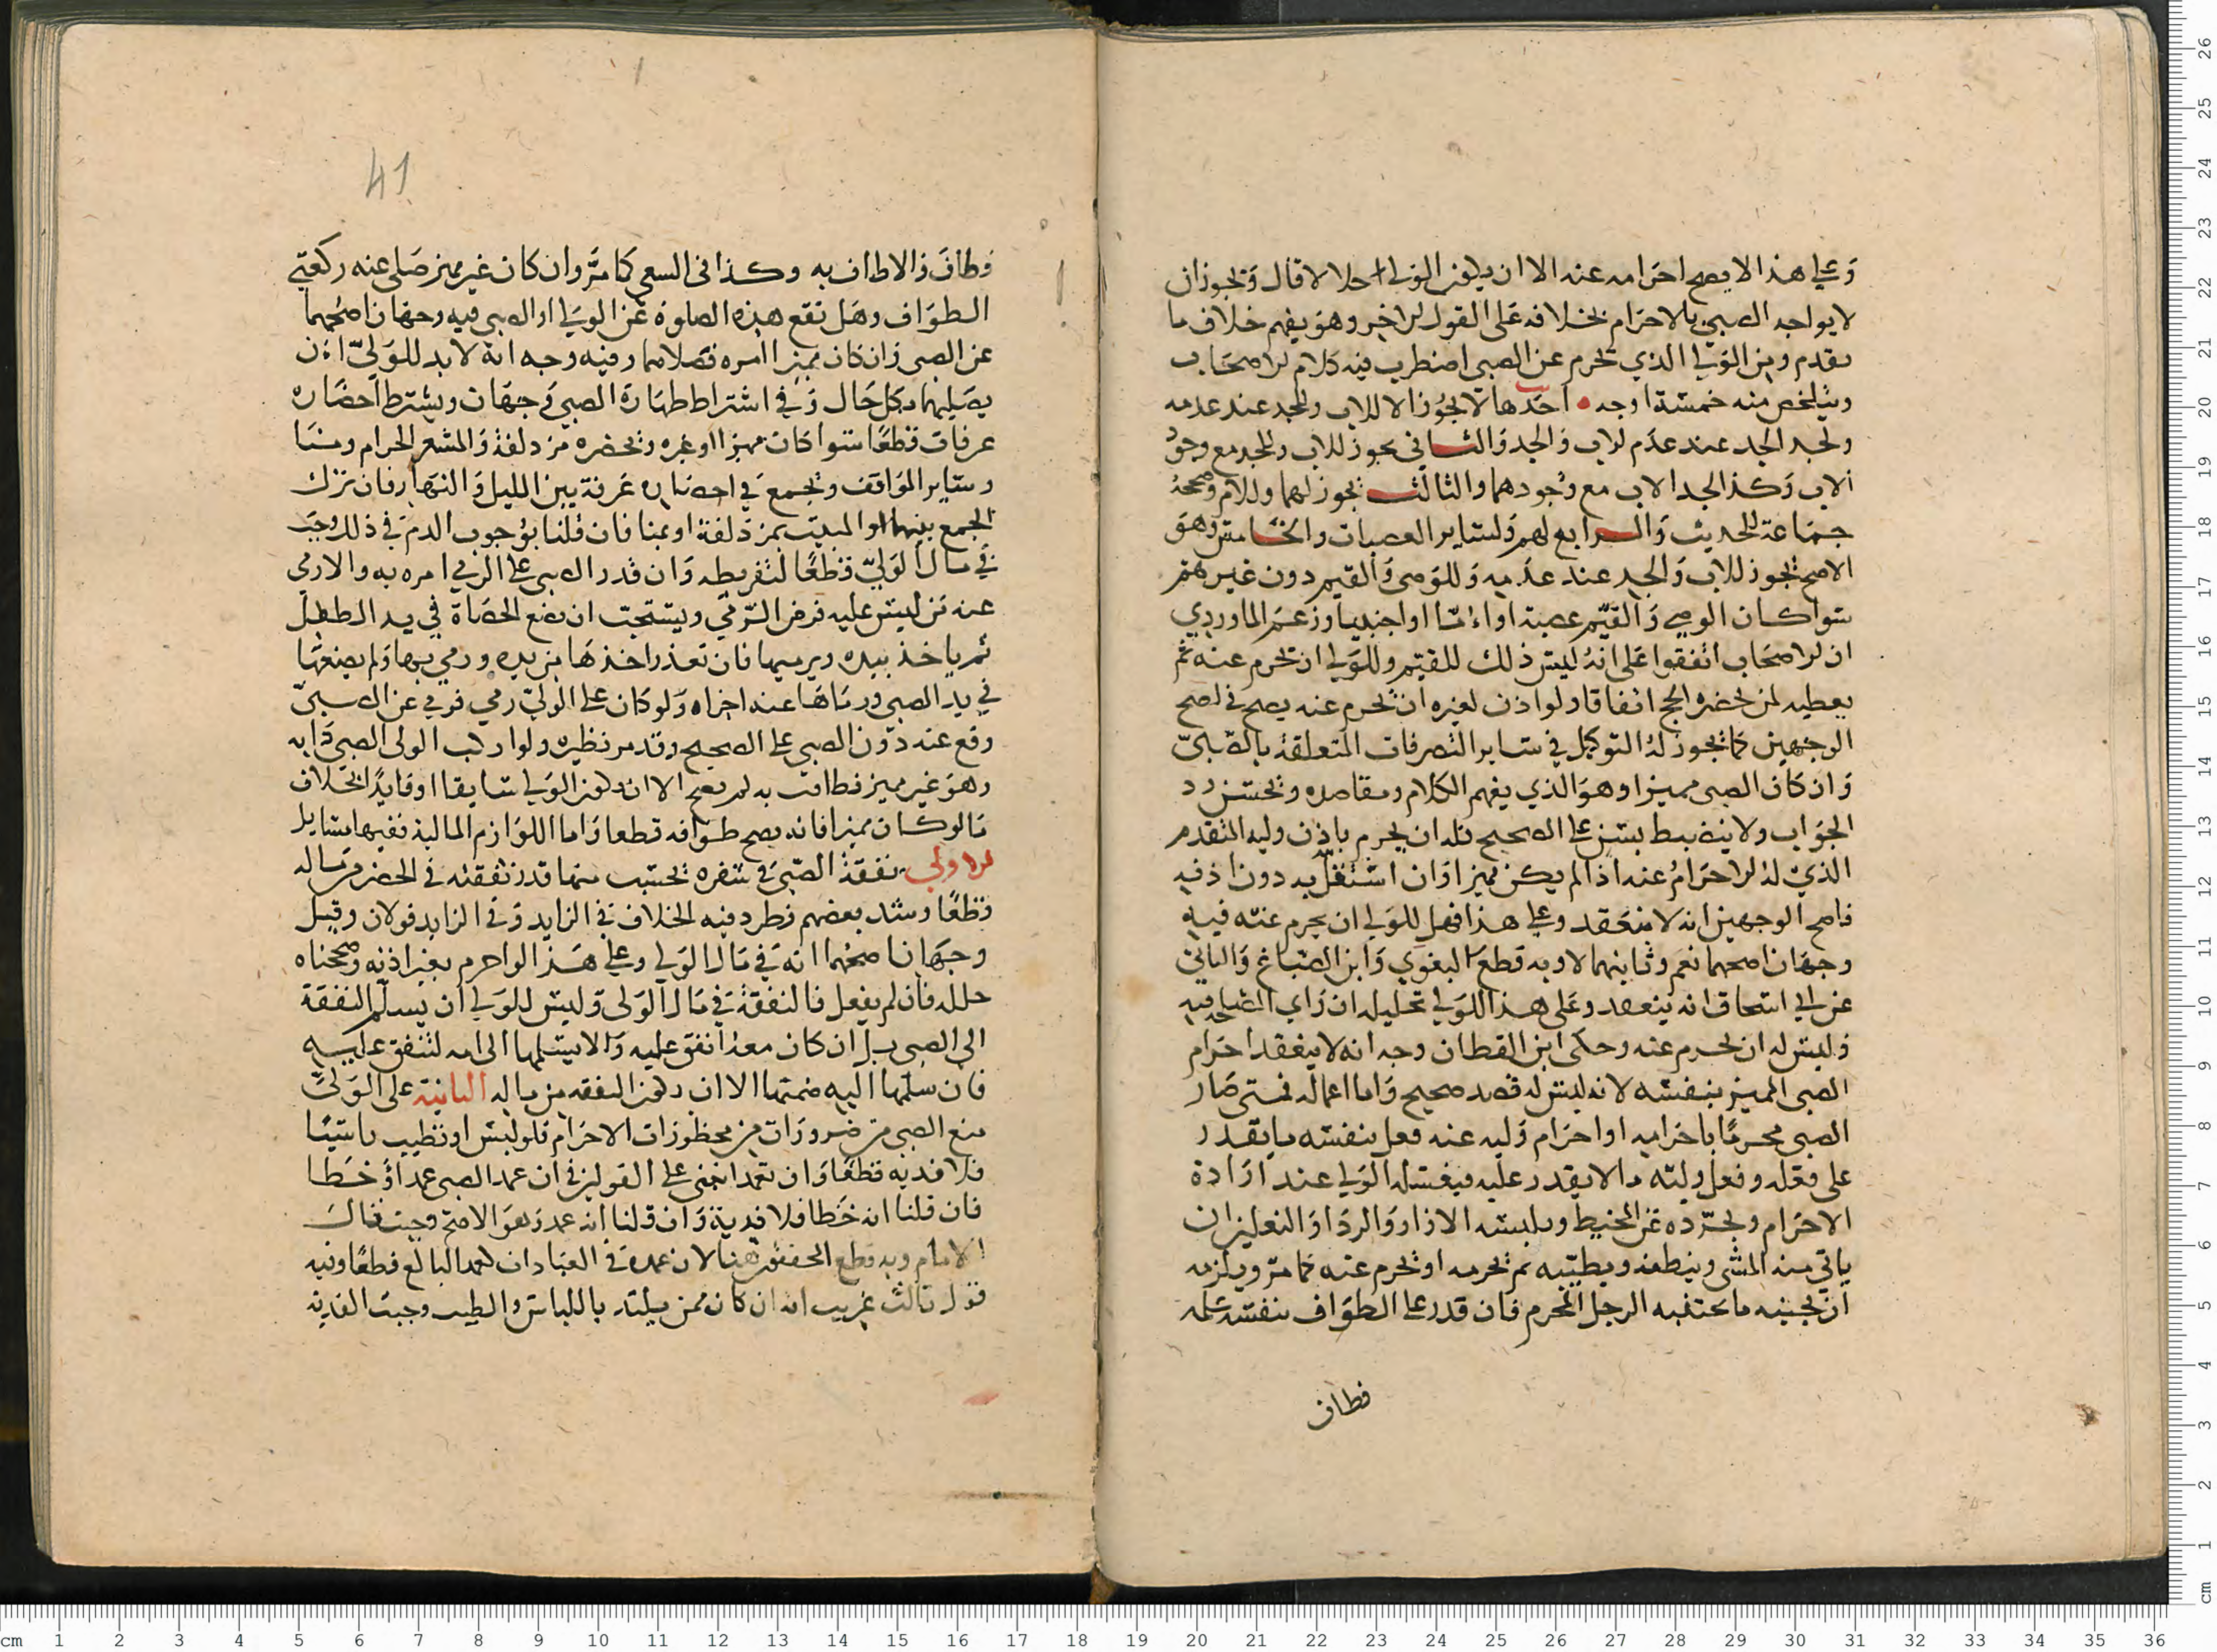 وعلى هذا لا يصح احرامه عنه الا ان يكون الولي حلالا قال ويجوز ان
لا يواجه الصبي بالاحرام بخلافه على القول الاخر وهو يفهم خلاف ما
تقدم ومن الولي الذي يحرم عن الصبي اضطرب فيه كلام الاصحاب
ويتلخص منه خمسة اوجه احدها لا يجوز الا للاب وللجد عند عدمه
ولجد الجد عند عدم الاب والجد والثاني يجوز للاب وللجد مع وجود
الاب وكذا لجد الاب مع وجودهما والثالث يجوز لهما وللام وصححه
جماعة للحديث والرابع لهم ولساير العصبات والخامس وهو
الاصح يجوز للاب والجد عند عدمه وللوصي والقيم دون غيرهم
سوا كان الوصي والقيم عصبة او اما او اجنبيا وزعم الماوردي
ان الاصحاب اتفقوا على انه ليس ذلك للقيم وللولي ان يحرم عنه ثم
يعطيه لمن يحضره الحج اتفاقا ولو اذن لغيره ان يحرم عنه يصح في اصح
الوجهين كما يجوز له التوكيل في ساير التصرفات المتعلقة بالصبي
وان كان الصبي مميزا وهو الذي يفهم الكلام ومقاصده ويحسن رد
الجواب ولا ينضبط بسن على الصحيح فله ان يحرم باذن وليه المتقدم
الذي له الاحرام عنه اذا لم يكن مميزا وان استقل به دون اذنه
فاصح الوجهين انه لا ينعقد وعلى هذا فهل للولي ان يحرم عنه فيه
وجهان اصحهما نعم وثانيهما لا وبه قطع البغوي وابن الصباغ والثاني
عن ابي اسحاق انه ينعقد وعلى هذا للولي تحليله ان راي المصلحة فيه
وليس له ان يحرم عنه وحكى ابن القطان وجه انه لا ينعقد احرام
الصبي المميز بنفسه لانه ليس له قصد صحيح واما اعماله فمتى صار
الصبي محرما باحرامه او احرام وليه عنه فعل بنفسه ما يقدر
على فعله وفعل وليه ما لا يقدر عليه فيغسله الولي عند ارادة
الاحرام ويجرده عن المخيط ويلبسه الازار والردا والنعلين ان
ياتي منه المشي وينظفه ويطيبه ثم يحرمه او يحرم عنه كما مر ويلزمه
ان يجنبه ما يجتنبه الرجل المحرم فان قدر على الطواف بنفسه علمه
فطاف
41
فطاف والا طاف به وكذا في السعي كما مر وان كان غير مميز صلى عنه ركعتي
الطواف وهل تقع هذه الصلوة عن الولي او الصبي فيه وجهان اصحهما
عن الصبي وان كان مميزا امره فصلاهما وفيه وجه انه لا بد للولي ان
يصليهما بكل حال وفي اشتراط طهارة الصبي وجهان ويشترط احضاره
عرفات قطعا سوا كان مميزا او غيره ويحضره مزدلفة والمشعر الحرام ومنا
وساير المواقف ويجمع في احضاره عرفة بين الليل والنهار فان ترك
الجمع بينهما او المبيت بمزدلفة او بمنا فان قلنا بوجوب الدم في ذلك وجب
في مال الولي قطعا لتفريطه وان قدر الصبي على الرمي امره به والا رمي
عنه من ليس عليه فرض الرمي ويستحب ان يضع الحصاة في يد الطفل
ثم ياخذ بيده ويرميها فان تعذر اخذها من يده ورمي بها ولم يضعها
في يد الصبي ورماها عنه اجزاه ولو كان على الولي رمي فرمي عن الصبي
وقع عنه دون الصبي على الصحيح وقد مر نظيره ولو اركب الولي الصبي دابة
وهو غير مميز فطافت به لم يصح الا ان يكون الولي سايقا او قايدا بخلاف
ما لو كان مميزا فانه يصح طوافه قطعا واما اللوازم المالية ففيها مسايل
الاولى نفقة الصبي في سفره يحسب منها قدر نفقته في الحضر من ماله
قطعا وشذ بعضهم وطرد فيه الخلاف في الزايد وفي الزايد قولان وقيل
وجهان اصحهما انه في مال الولي وعلى هذا لو احرم بغير اذنه وصححناه
حلله فان لم يفعل فالنفقة في مال الولي وليس للولي ان يسلم النفقة
الى الصبي بل ان كان معه انفق عليه والا يسلمها الى امه لتنفق عليه
فان سلمها اليه ضمنها الا ان يكون النفقه من ماله الثانية على الولي
منع الصبي من محظورات الاحرام فلو لبس او تطيب ناسيا
فلا فدية قطعا وان تعمد انبنى على القولين في ان عمد الصبي عمد او خطا
فان قلنا انه خطا فلا فدية وان قلنا انه عمد وهو الاصح وجبت قال
الامام وبه قطع المحققون هنا لان عمده في العبادات كعمد البالغ قطعا وفيه
قول ثالث غريب انه ان كان ممن يلتذ باللباس والطيب وجبت الفدية